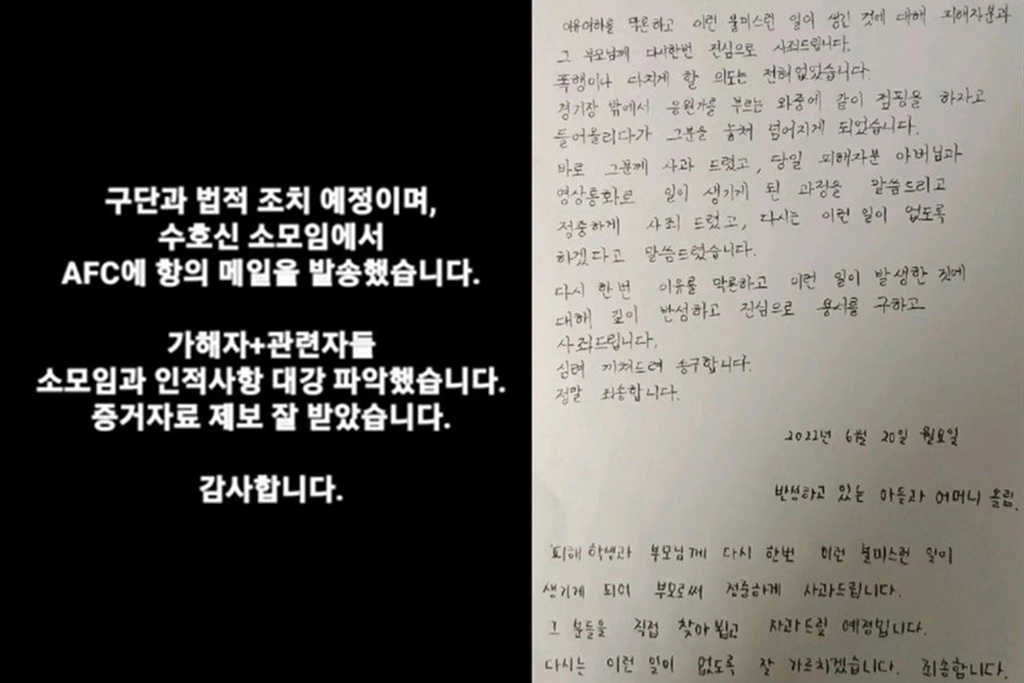 구단과 법적 조치 예정이며,
수호신 소모임에서
AFC에 항의 메일을 발송했습니다.
가해자+관련자들
소모임과 인적사항 대강 파악했습니다.
증거자료 제보 잘 받았습니다.
감사합니다.
이유여하를 막론하고 이런 불미스런 일이 생긴 것에 대해 피해자분과
그 부모님께 다시한번 진심으로 사죄드립니다.
폭행이나 다치게 할 의도는 전혀없었습니다.
경기장 밖에서 응원가를 부르는 와중에 같이 점핑을 하자고
들어올리다가 그분을 놓쳐 넘어지게 되었습니다.
바로 그분께 사과 드렸고, 당일 피해자분 아버님과
영상통화로 일이 생기게 된 과정을 말씀드리고
정중하게 사죄 드렸고, 다시는 이런 일이 없도록
하겠다고 말씀드렸습니다.
다시 한번 이유를 막론하고 이런 일이 발생한 것에
대해 깊이 반성하고 진심으로 용서를 구하고
사죄드립니다.
심려 끼쳐드려 송구합니다.
정말 죄송합니다.
2022년 6월 20일 월요일
반성하고 있는 아들과 어머니 올림.
피해 학생과 부모님께 다시 한번 이런 불미스런 일이
생기게 되어 부모로써 정중하게 사과드립니다.
그 분들을 직접 찾아뵙고 사과드릴 예정입니다.
다시는 이런 일이 없도록 잘 가르치겠습니다. 죄송합니다.